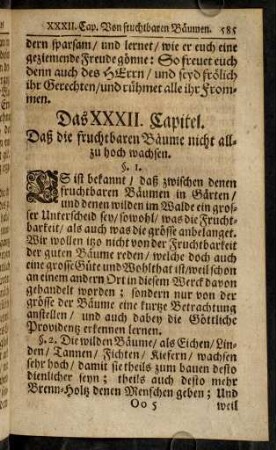 XXXII. Cap. Von fruchtbaren Bäumen. 585
dern sparsam/ und lernet/ wie er euch eine
geziemende Freude gönne: So freuet euch
denn auch des HErrn/ und seyd frölich
ihr Gerechten/ und rühmet alle ihr From-
men.
Das XXXII. Capitel.
Daß die fruchtbaren Bäume nicht all-
zu hoch wachsen.
§. 1.
ES ist bekannt/ daß zwischen denen
fruchtbaren Bäumen in Gärten/
und denen wilden im Walde ein gros-
ser Unterscheid sey/ sowohl/ was die Frucht-
barkeit/ als auch was die grösse anbelanget.
Wir wollen itzo nicht von der Fruchtbarkeit
der guten Bäume reden/ welche doch auch
eine grosse Güte und Wohlthat ist/ weil schon
an einem andern Ort in diesem Werck davon
gehandelt worden; sondern nur von der
grösse der Bäume eine kurtze Betrachtung
anstellen/ und auch dabey die Göttliche
Providentz erkennen lernen.
§. 2. Die wilden Bäume/ als Eichen/ Lin-
den/ Tannen/ Fichten/ Kiefern/ wachsen
sehr hoch/ damit sie theils zum bauen desto
dienlicher seyn; theils auch desto mehr
Brenn-Holtz denen Menschen geben; Und
Oo 5 weil